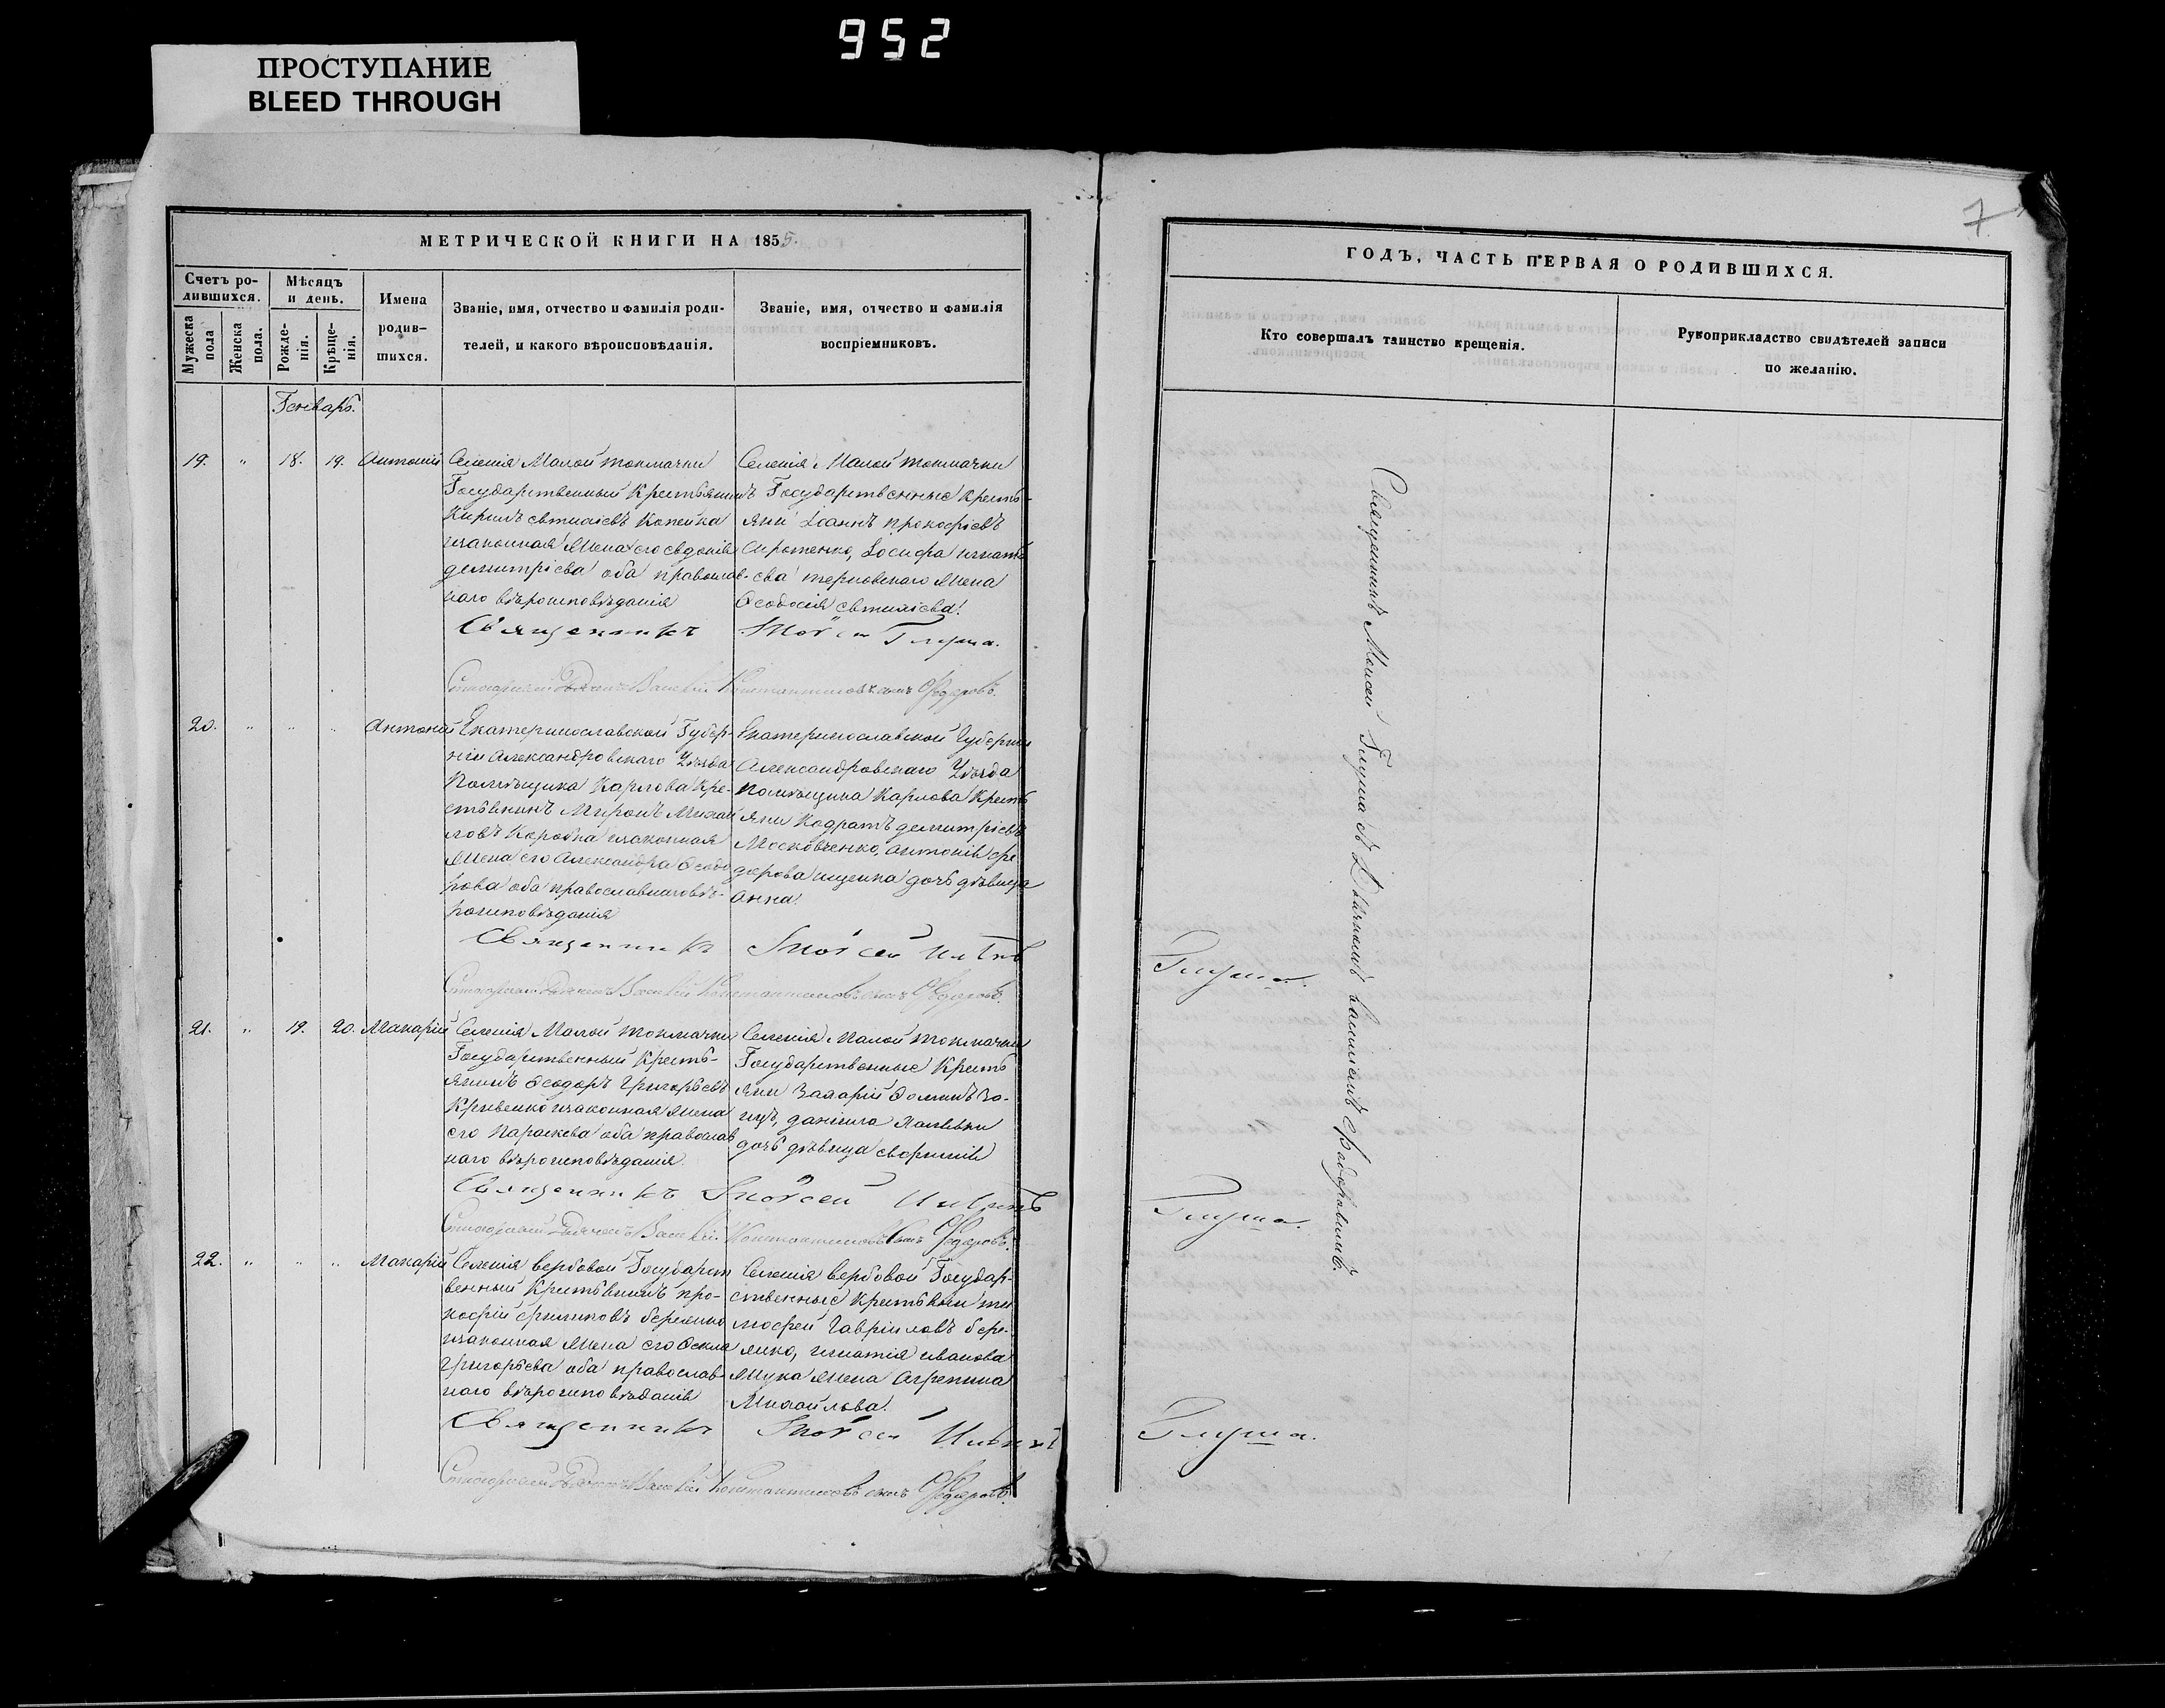 952
ПРОСТУПАНИЕ
BLEED THROUGH
МЕТРИЧЕСКОЙ КНИГИ НА 1855.
Счетъ ро-
дившихся.
Мѣсяцъ
и день.
Мужеска
пола
Женска
пола.
Рожде-
нія.
Крѣще-
нія.
Имена
родив-
шихся.
Званіе, имя, отчество и фамилія роди-
телей, и какого вѣроисповѣданія.
Званіе, имя, отчество и фамилія
воспріемниковъ.
Генварь.
19. " 18. 19. Антоній
Селенія Малой токмачки
Государственный Крестьянинъ
Кирилъ Копейка
законная Жена его евдокія
димитріева оба православ-
наго вѣроисповѣданія
Селенія Малой токмачки
Государственные кресть-
яни Іоаннъ прокофіевъ
Сиротенко, Іосифа игнать
ева терновскаго Жена
Ѳеодосія
Священникъ Моѵсей Глуша.
Василій Константиновъ сынъ Ѳедоровъ.
20. " " " Антоній
Екатеринославской Губер-
ніи Александровскаго Уѣзда
Помѣщика Карпова Кре-
стьянинъ Миронъ Михай
ловъ Коробка законная
Жена его Александра Ѳеодо
рова оба православнаго вѣ-
роисповѣданія
Екатеринославской Губерніи
Александровскаго Уѣзда
помѣщика Карпова Кресть
яни Кодратъ димитріевъ
Московченко, антонія фе
дорова ищенка дочь дѣвица
анна.
Священникъ Моѵсей Ильинъ
Василій Константиновъ сынъ Ѳедоровъ.
21. " 19. 20. Макарій
Селенія Малой токмачки
Государственный Кресть-
янинъ Ѳеодоръ Григорьевъ
Кривенко законная Жена
его Параскева оба православ
наго вѣроисповѣданія.
Селенія Малой токмачки
Государственные Кресть
яни Захарій
даніила
дочь дѣвица
Священникъ Моѵсей Ильинъ
Василій Константиновъ сынъ Ѳедоровъ.
22. " " " Макарій
Селенія вербовой Государст
венный Крестьянинъ про-
кофій
законная Жена его
Григорьева оба православ
наго вѣроисповѣданія
Селенія вербовой Государ-
ственные Крестьяни ти
мофей Гавріиловъ бере-
жко, игнатія иванова
Жука Жена Агрепина
Михайлова.
Священникъ Моѵсей Ильинъ
Василій Константиновъ сынъ Ѳедоровъ.
7
ГОДЪ, ЧАСТЬ ПЕРВАЯ О РОДИВШИХСЯ.
Кто совершалъ таинство крещенія.
Рукоприкладство свидѣтелей записи
по желанію.
Священникъ Моисей Глуша съ Дьячкомъ Василіемъ
Глуша.
Глуша.
Глуша.